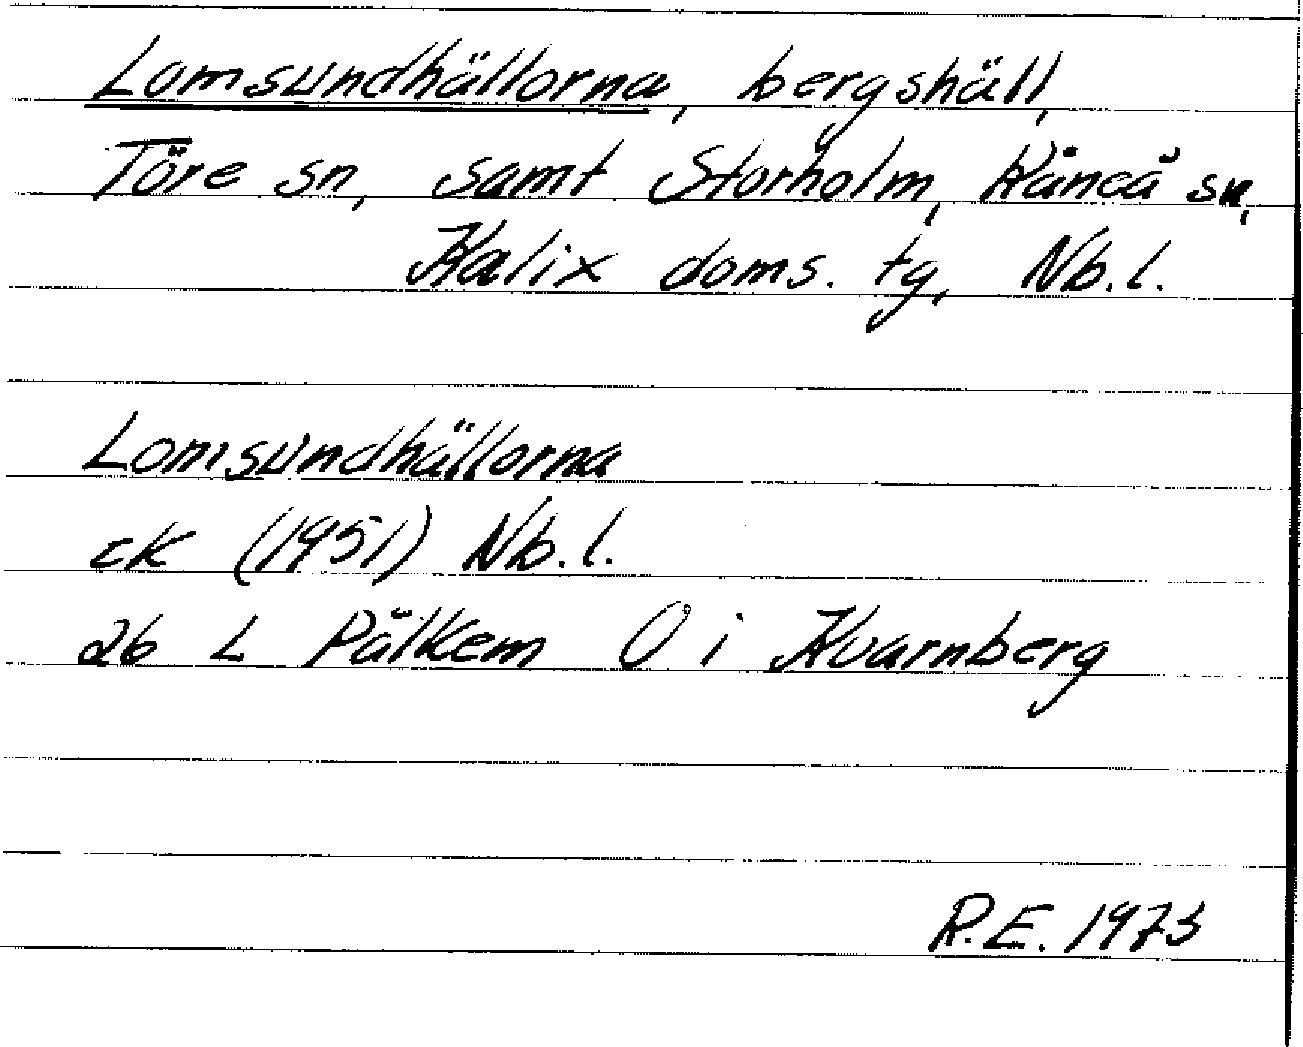 Lomsundhällorna, bergshäll,
Töre sn, samt Storholm, Råneå sn,
Kalix doms. tg, Nb.l.
Lomsundhällorna
ek (1951) Nb.l.
26 L Pålkem O i Kvarnberg
R.E. 1973